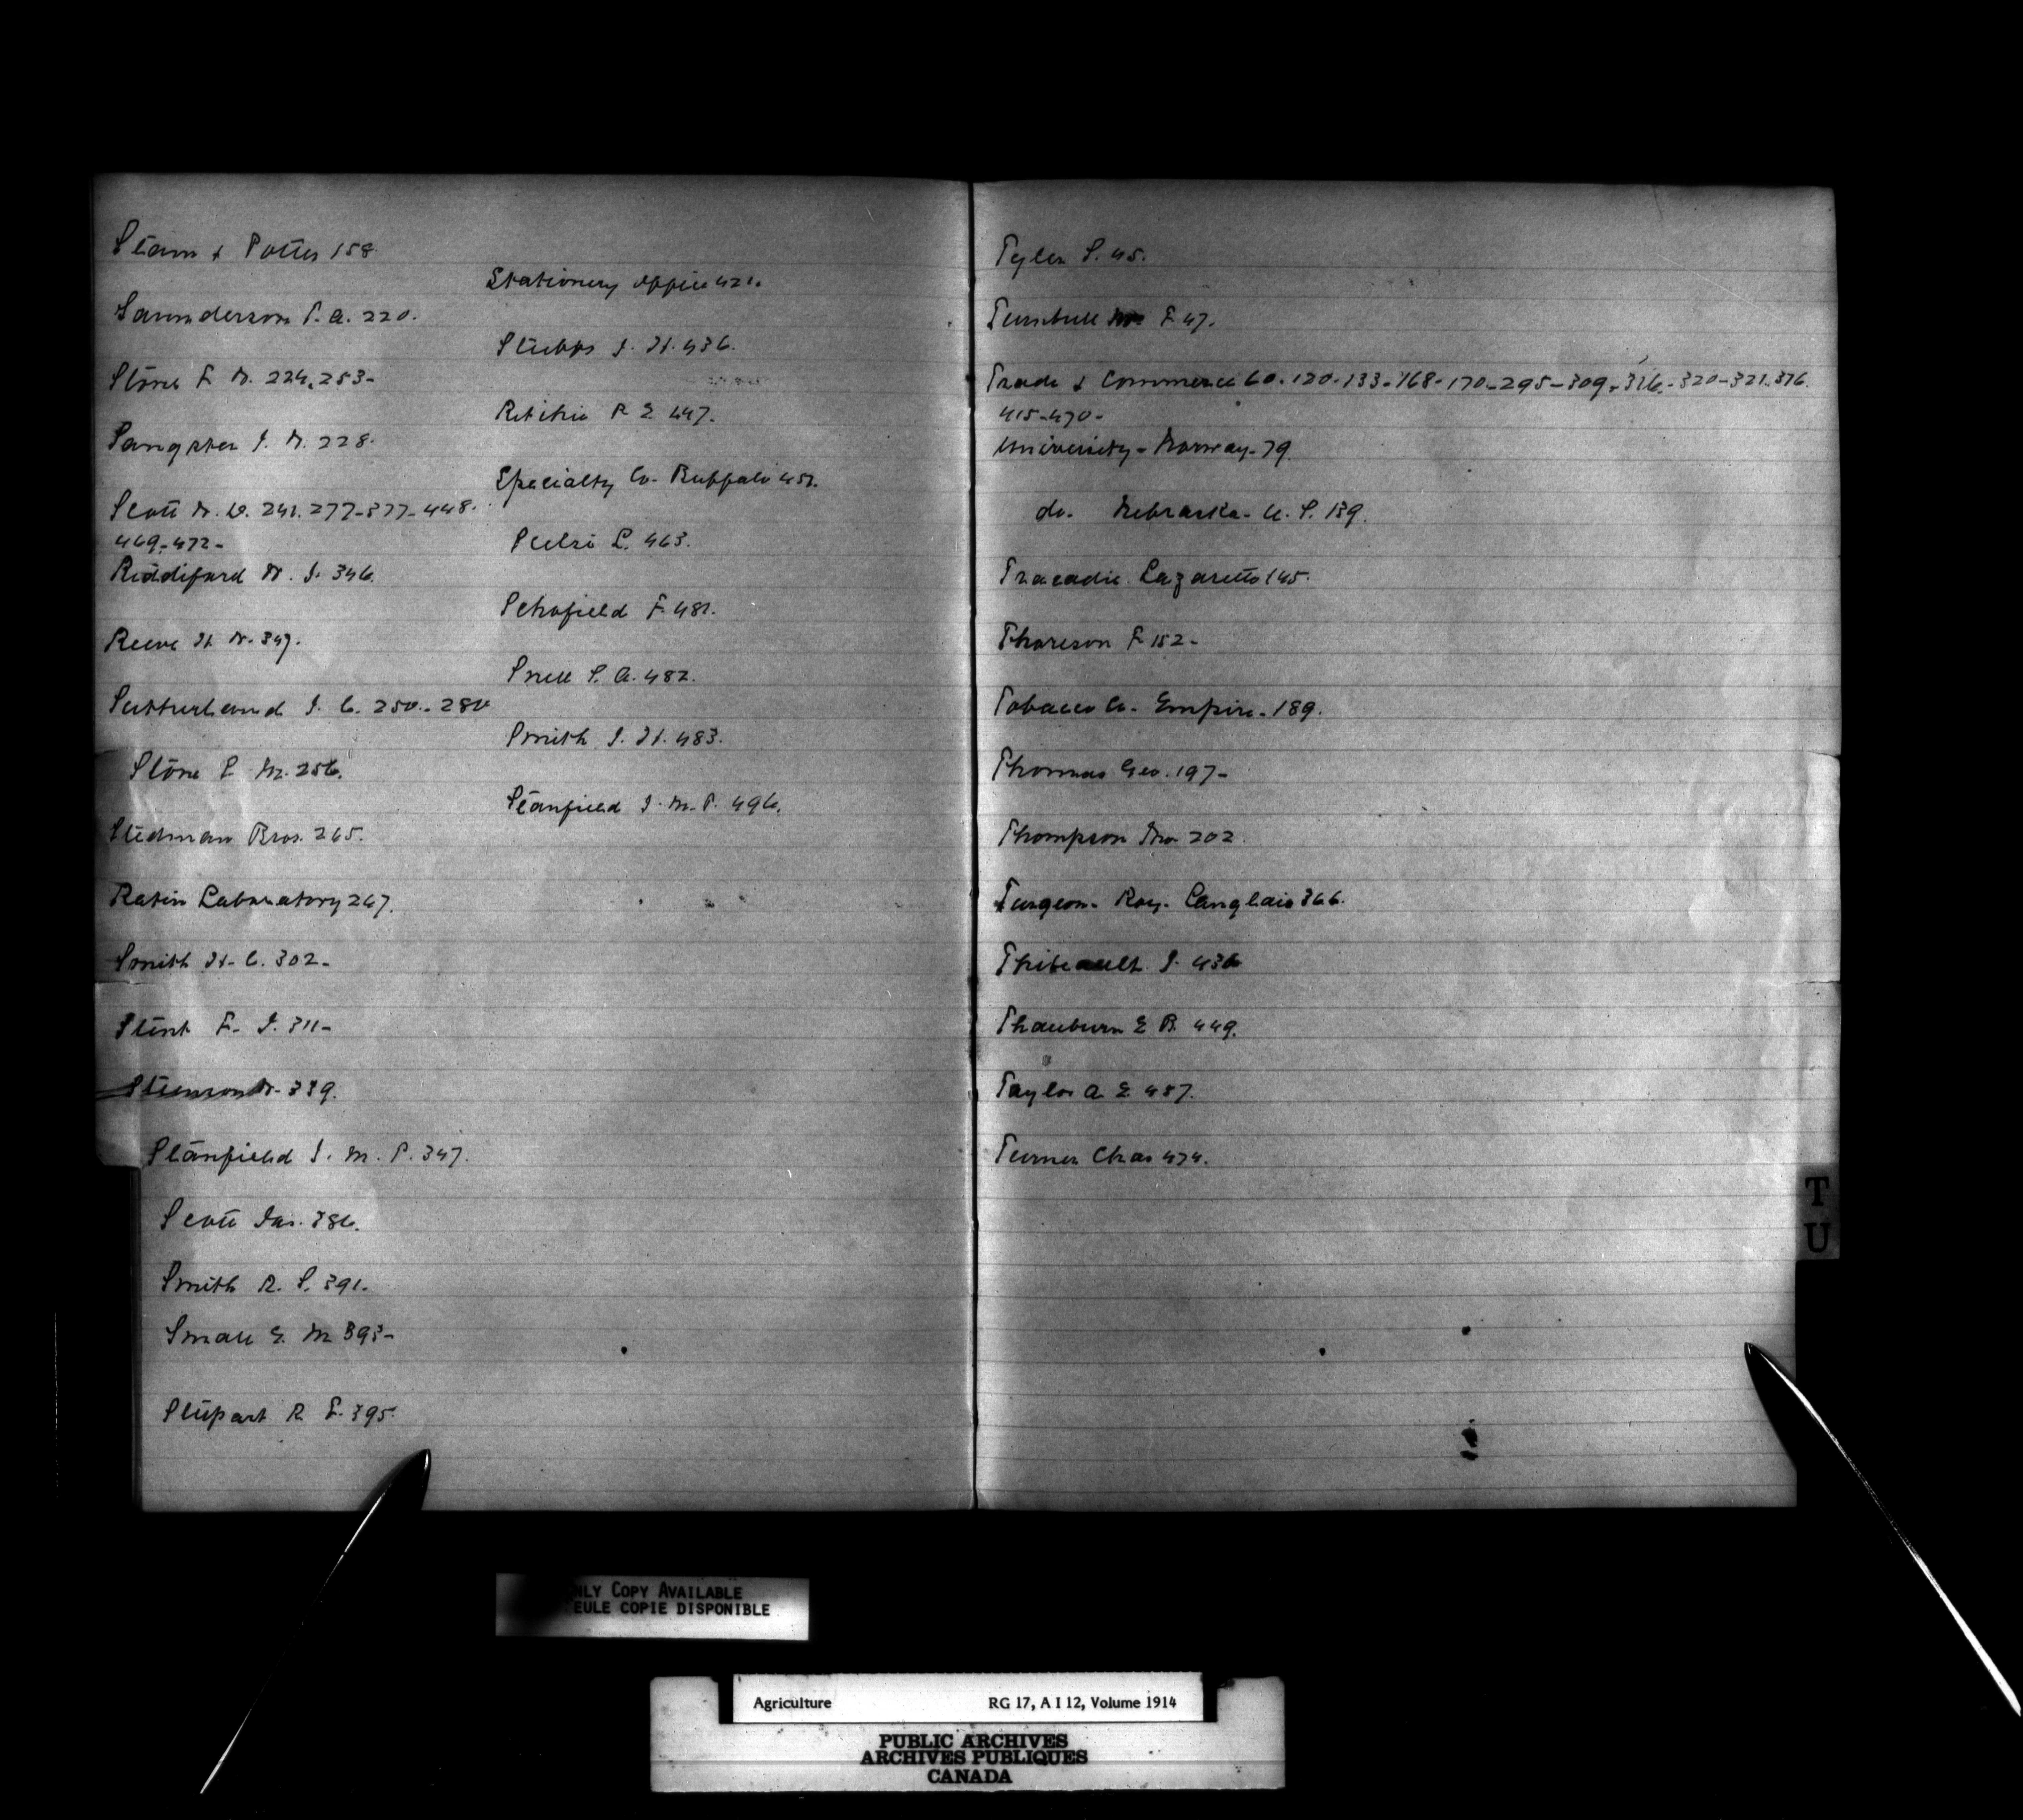 Stam & Potter 158.
Saunderson P. A. 220.
Stone F. W. 224, 253-
Sangster J. W. 228.
Scott W. D. 241. 277-377-448.
469-472-
Riddiford W. J. 346.
Reeve H W. 347.
Sutherland J. C. 250.-280
Stone P. M. 256.
Stedman Bros. 265.
Ratin Laboratory 267.
Smith H. C. 302-
Stent F. J. 311-
Stevenson W. 339.
Stanfield J. M. P. 347.
Scott Jas. 386.
Smith R. S. 391.
Small G. M 393-
Stupart R F. 395.
Stationery office 421.
Stubbs J. H. 436.
Ritchie R E 447.
Specialty Co. Buffalo 451.
L. 463.
Schofield F. 481.
Snell S. A. 482.
Smith J. H. 483.
Stanfield J. M. P. 496.
Tyler S. 45.
Turnbull F 47.
Trade & Commerce 60-120-133-168-170-295-309-316-320-321-376.
415-470-
University - Norway - 79.
do. Nebraska - U. S. 139.
Tracadie Lazaretto 145.
Thoreson F 152-
Tobacco Co. Empire - 189.
Thomas Geo. 197-
Thompson Jno. 202.
Turgeon - Roy - Langlais 366.
Thibeault J. 436
Thauburn E B. 449.
Taylor A. E 457.
Turner Chas 474.
T
U
NLY COPY AVAILABLE
EULE COPIE DISPONIBLE
Agriculture RG 17, A I 12, Volume 1914
PUBLIC ARCHIVES
ARCHIVES PUBLIQUES
CANADA